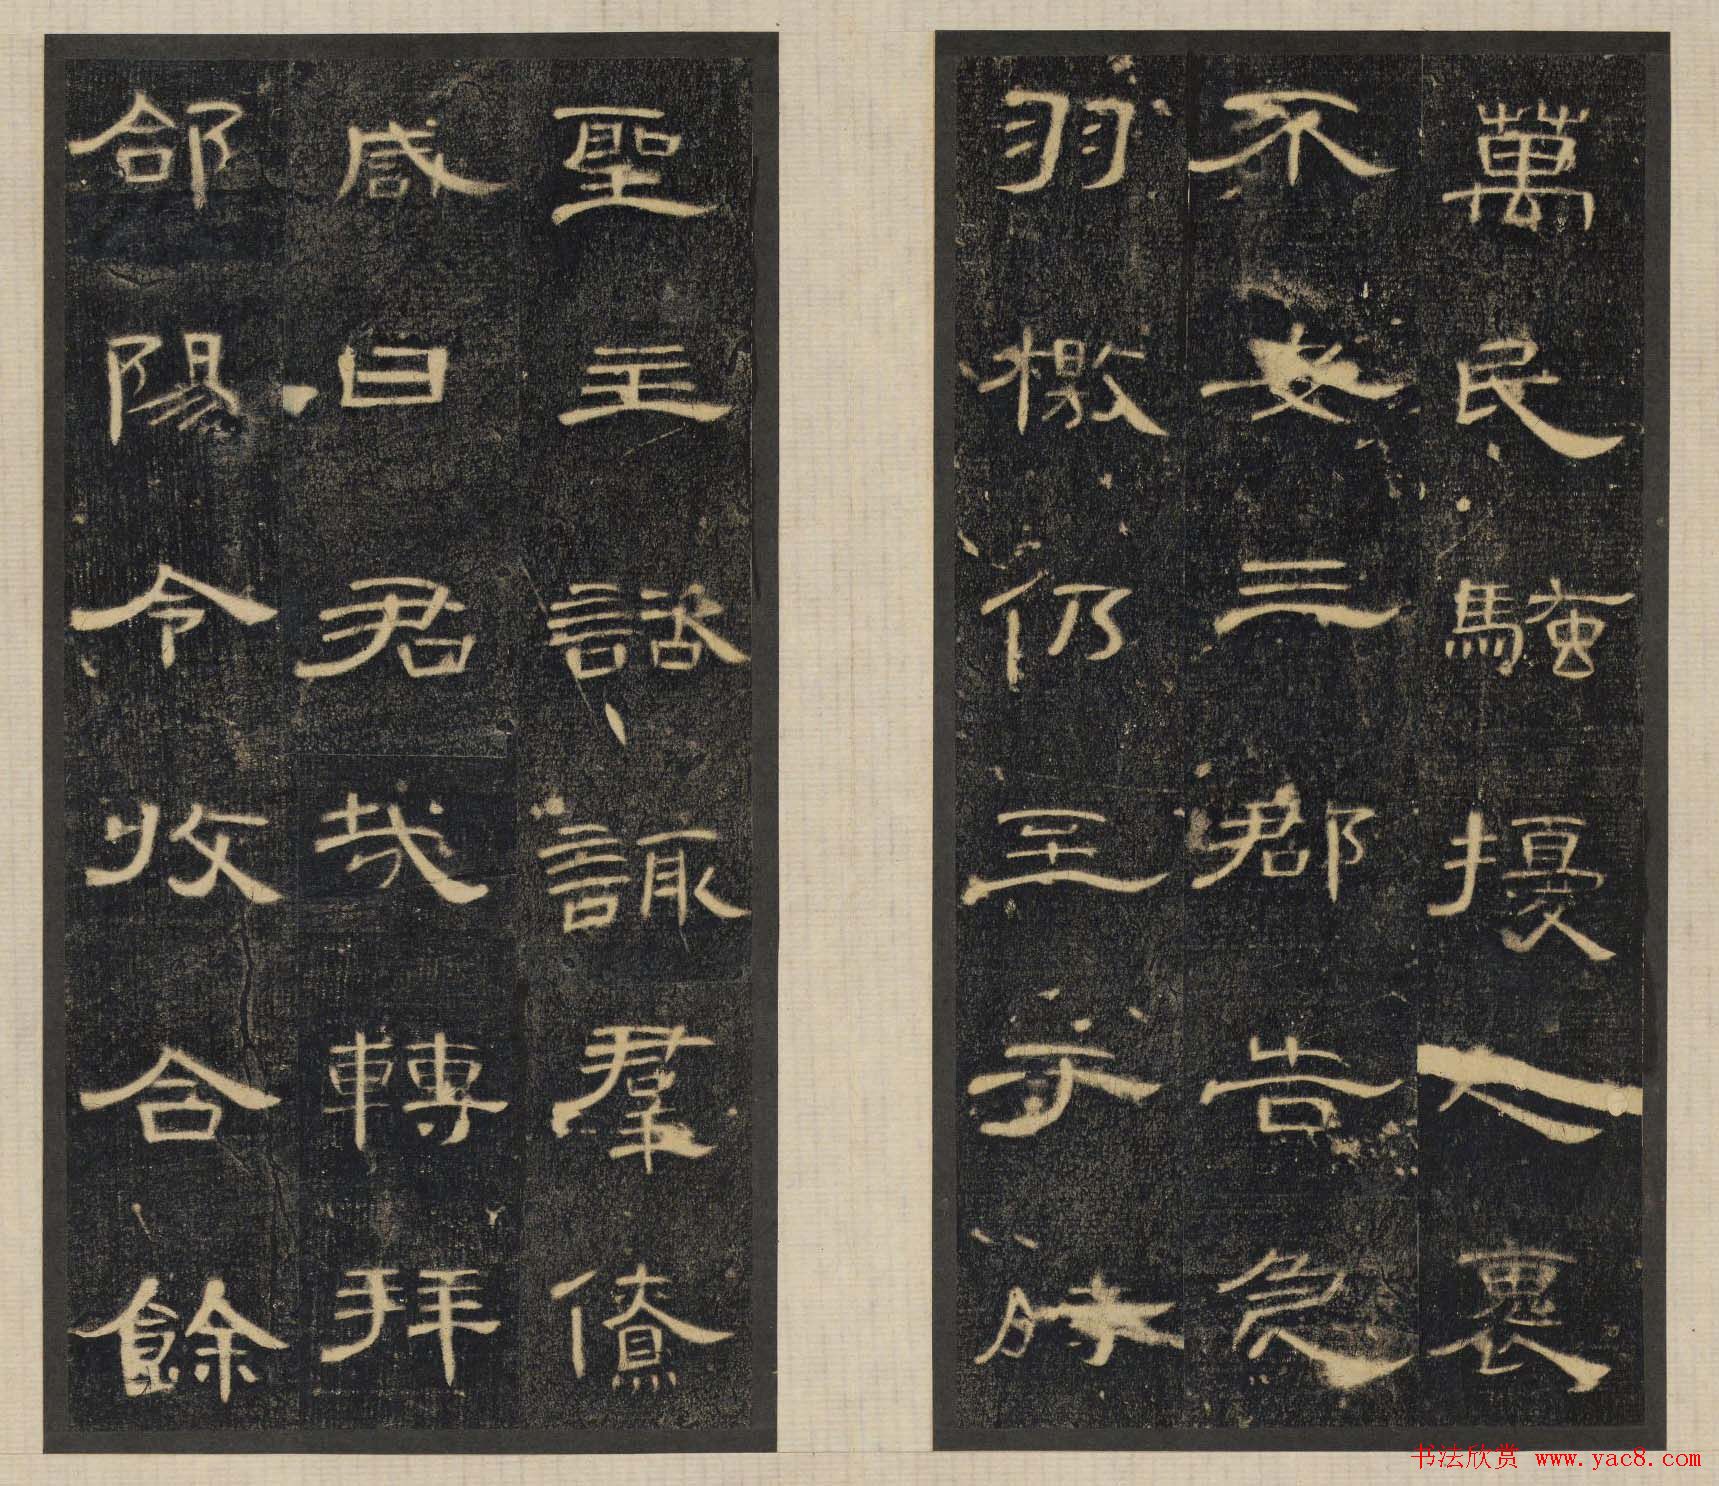 萬民騷擾人裹
不安三郡告急
羽檄仍至于時
聖主諮諏羣僚
咸曰君哉轉拜
郃陽令收合餘
书法欣赏 www.yac8.com